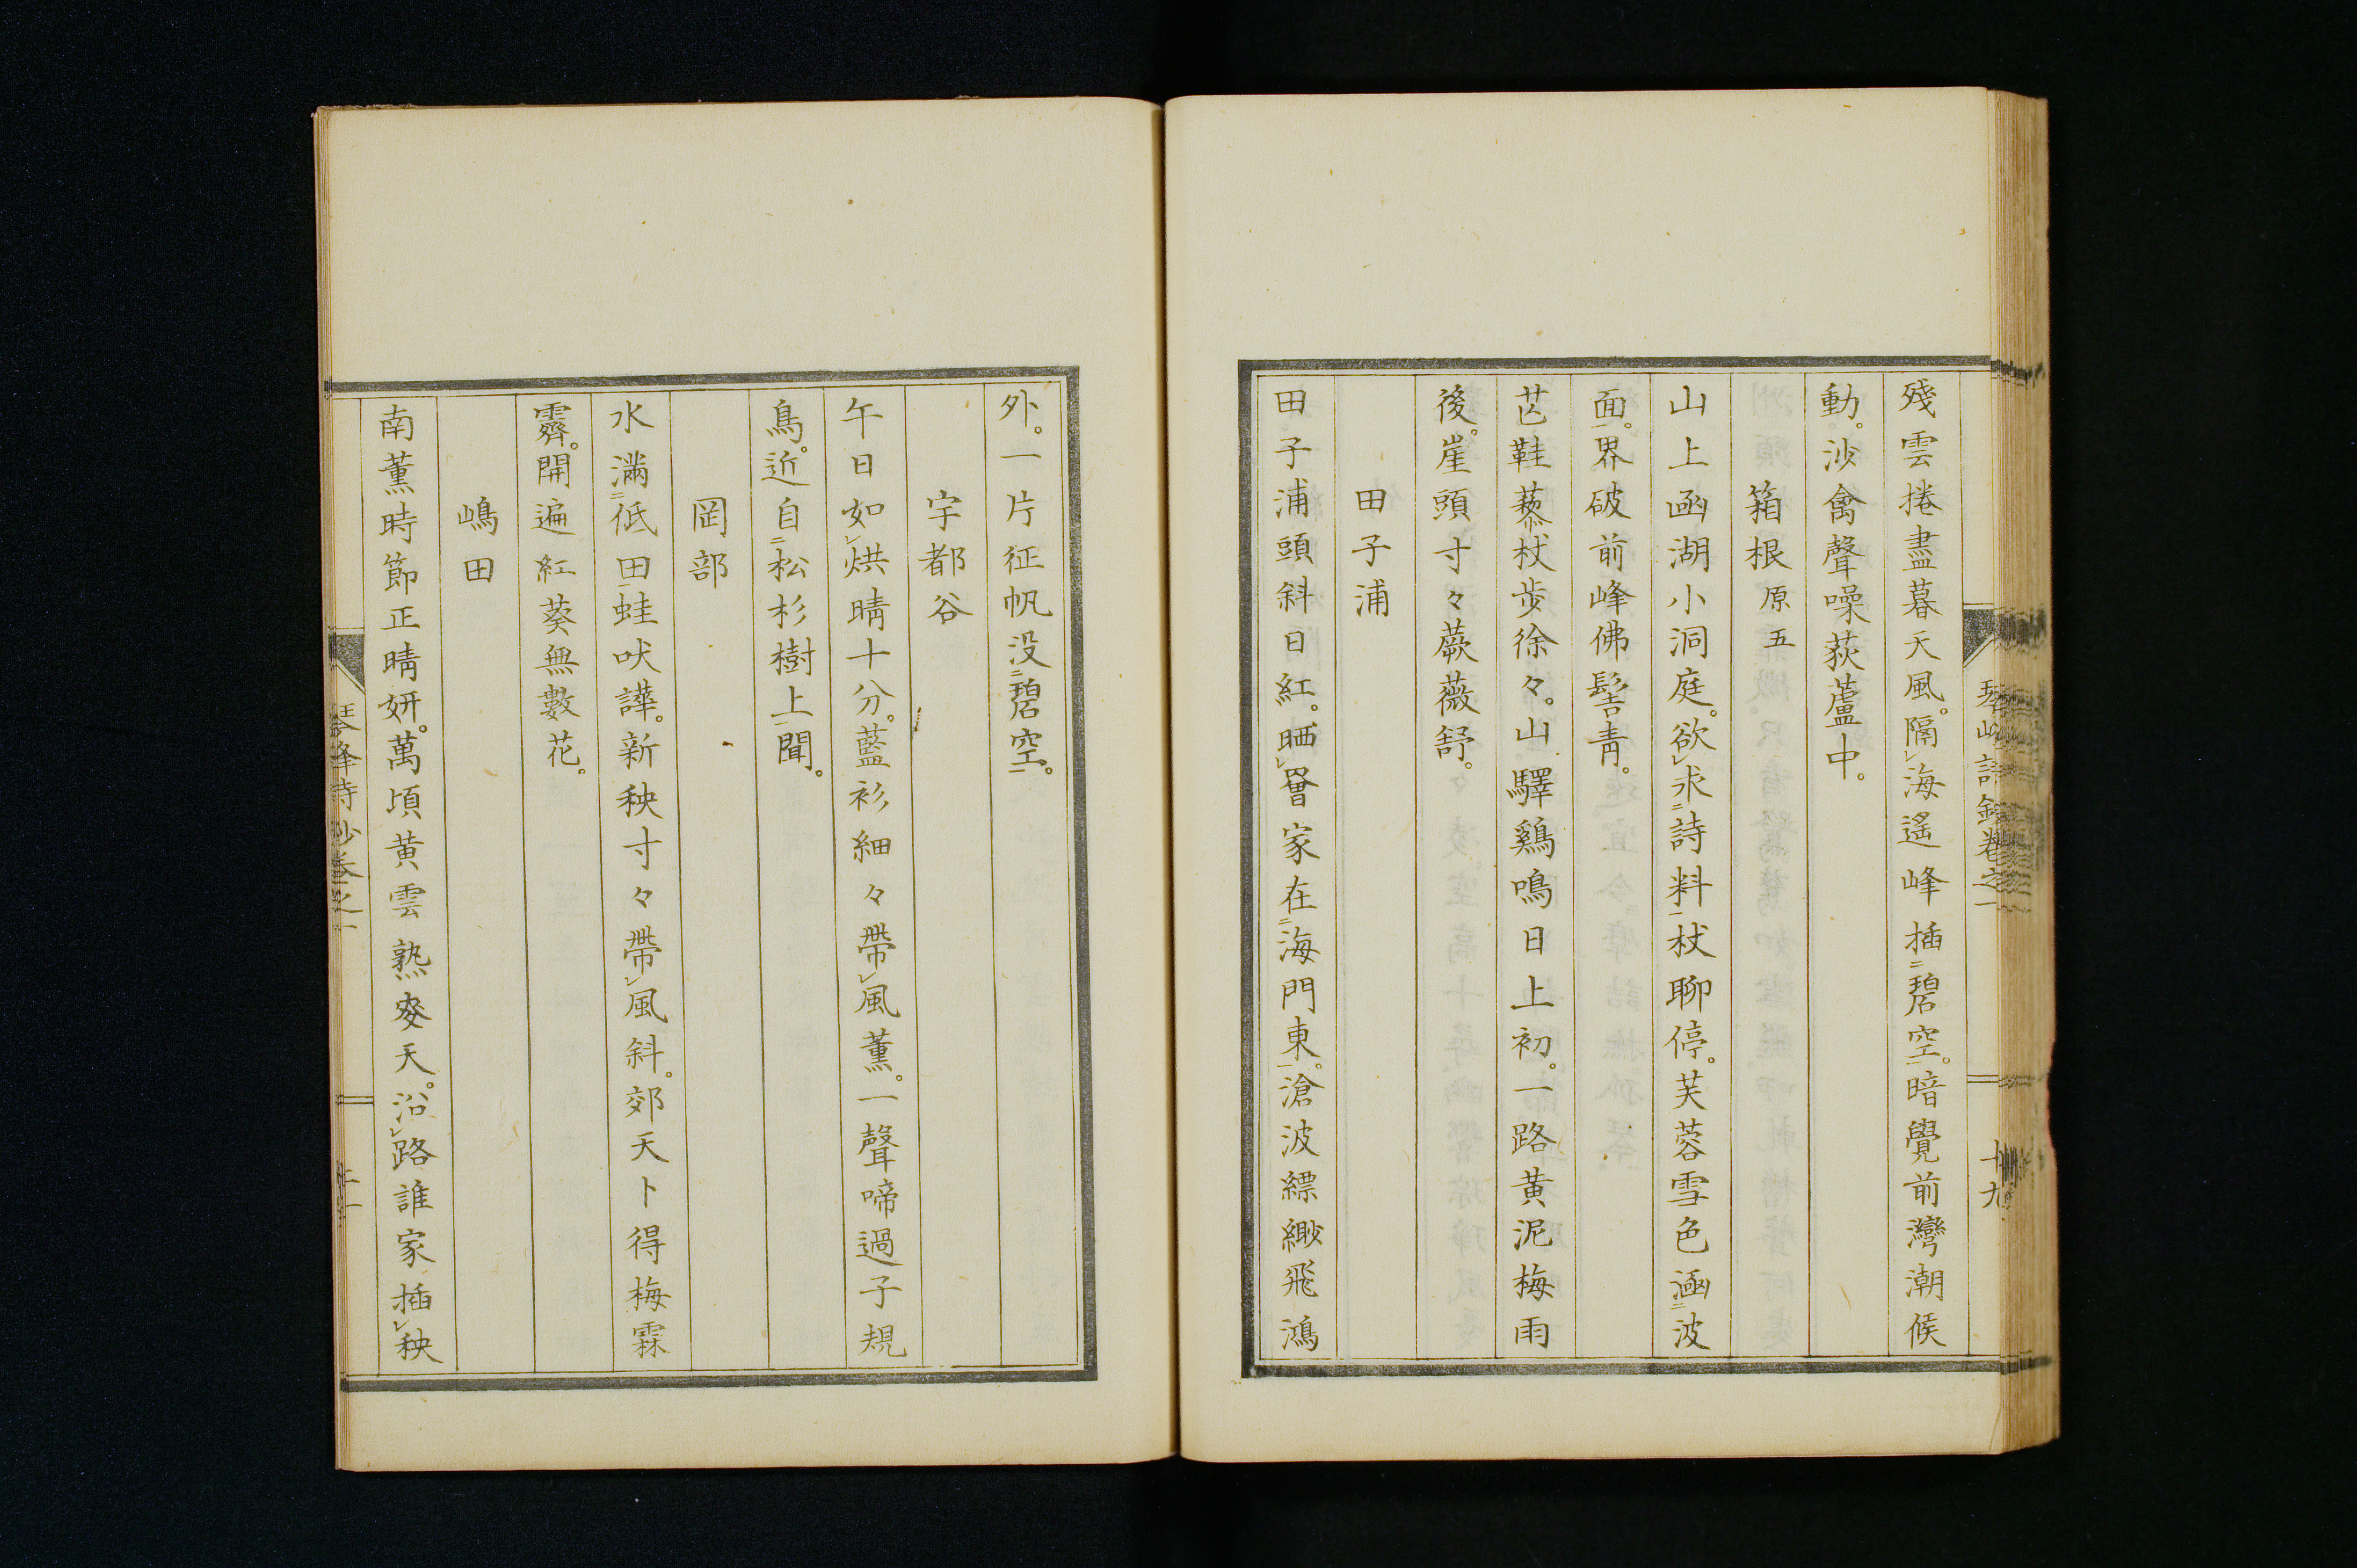 殘雲捲盡暮天風。隔㆑海遙峰插㆓碧空㆒。暗覺前灣潮候
動。沙禽聲噪荻蘆中。
箱根原五
山上凾湖小洞庭。欲㆑求㆓詩料㆒杖聊停。芙蓉雪色涵㆓波
面㆒。界破前峰佛髻青。
芒鞋藜杖步徐々。山驛鷄鳴日上初。一路黃泥梅雨
後。崖頭寸々蕨薇舒。
田子浦
田子浦頭斜日紅。晒㆑罾家在㆓海門東㆒。滄波縹緲飛鴻
外。一片征帆没㆓碧空㆒。
宇都谷
午日如㆑烘晴十分。藍衫細々帶㆑風薰。一聲啼過子規
鳥。近自㆓松杉樹上㆒聞。
岡部
水滿㆓低田㆒蛙吠譁。新秧寸々帶㆑風斜。郊天卜得梅霖
霽。開遍紅葵無數花。
嶋田
南薰時節正晴妍。萬頃黃雲熟麥天。沿㆑路誰家插㆑秧
琴峰詩鈔卷之一
十九
琴峰詩鈔卷之一